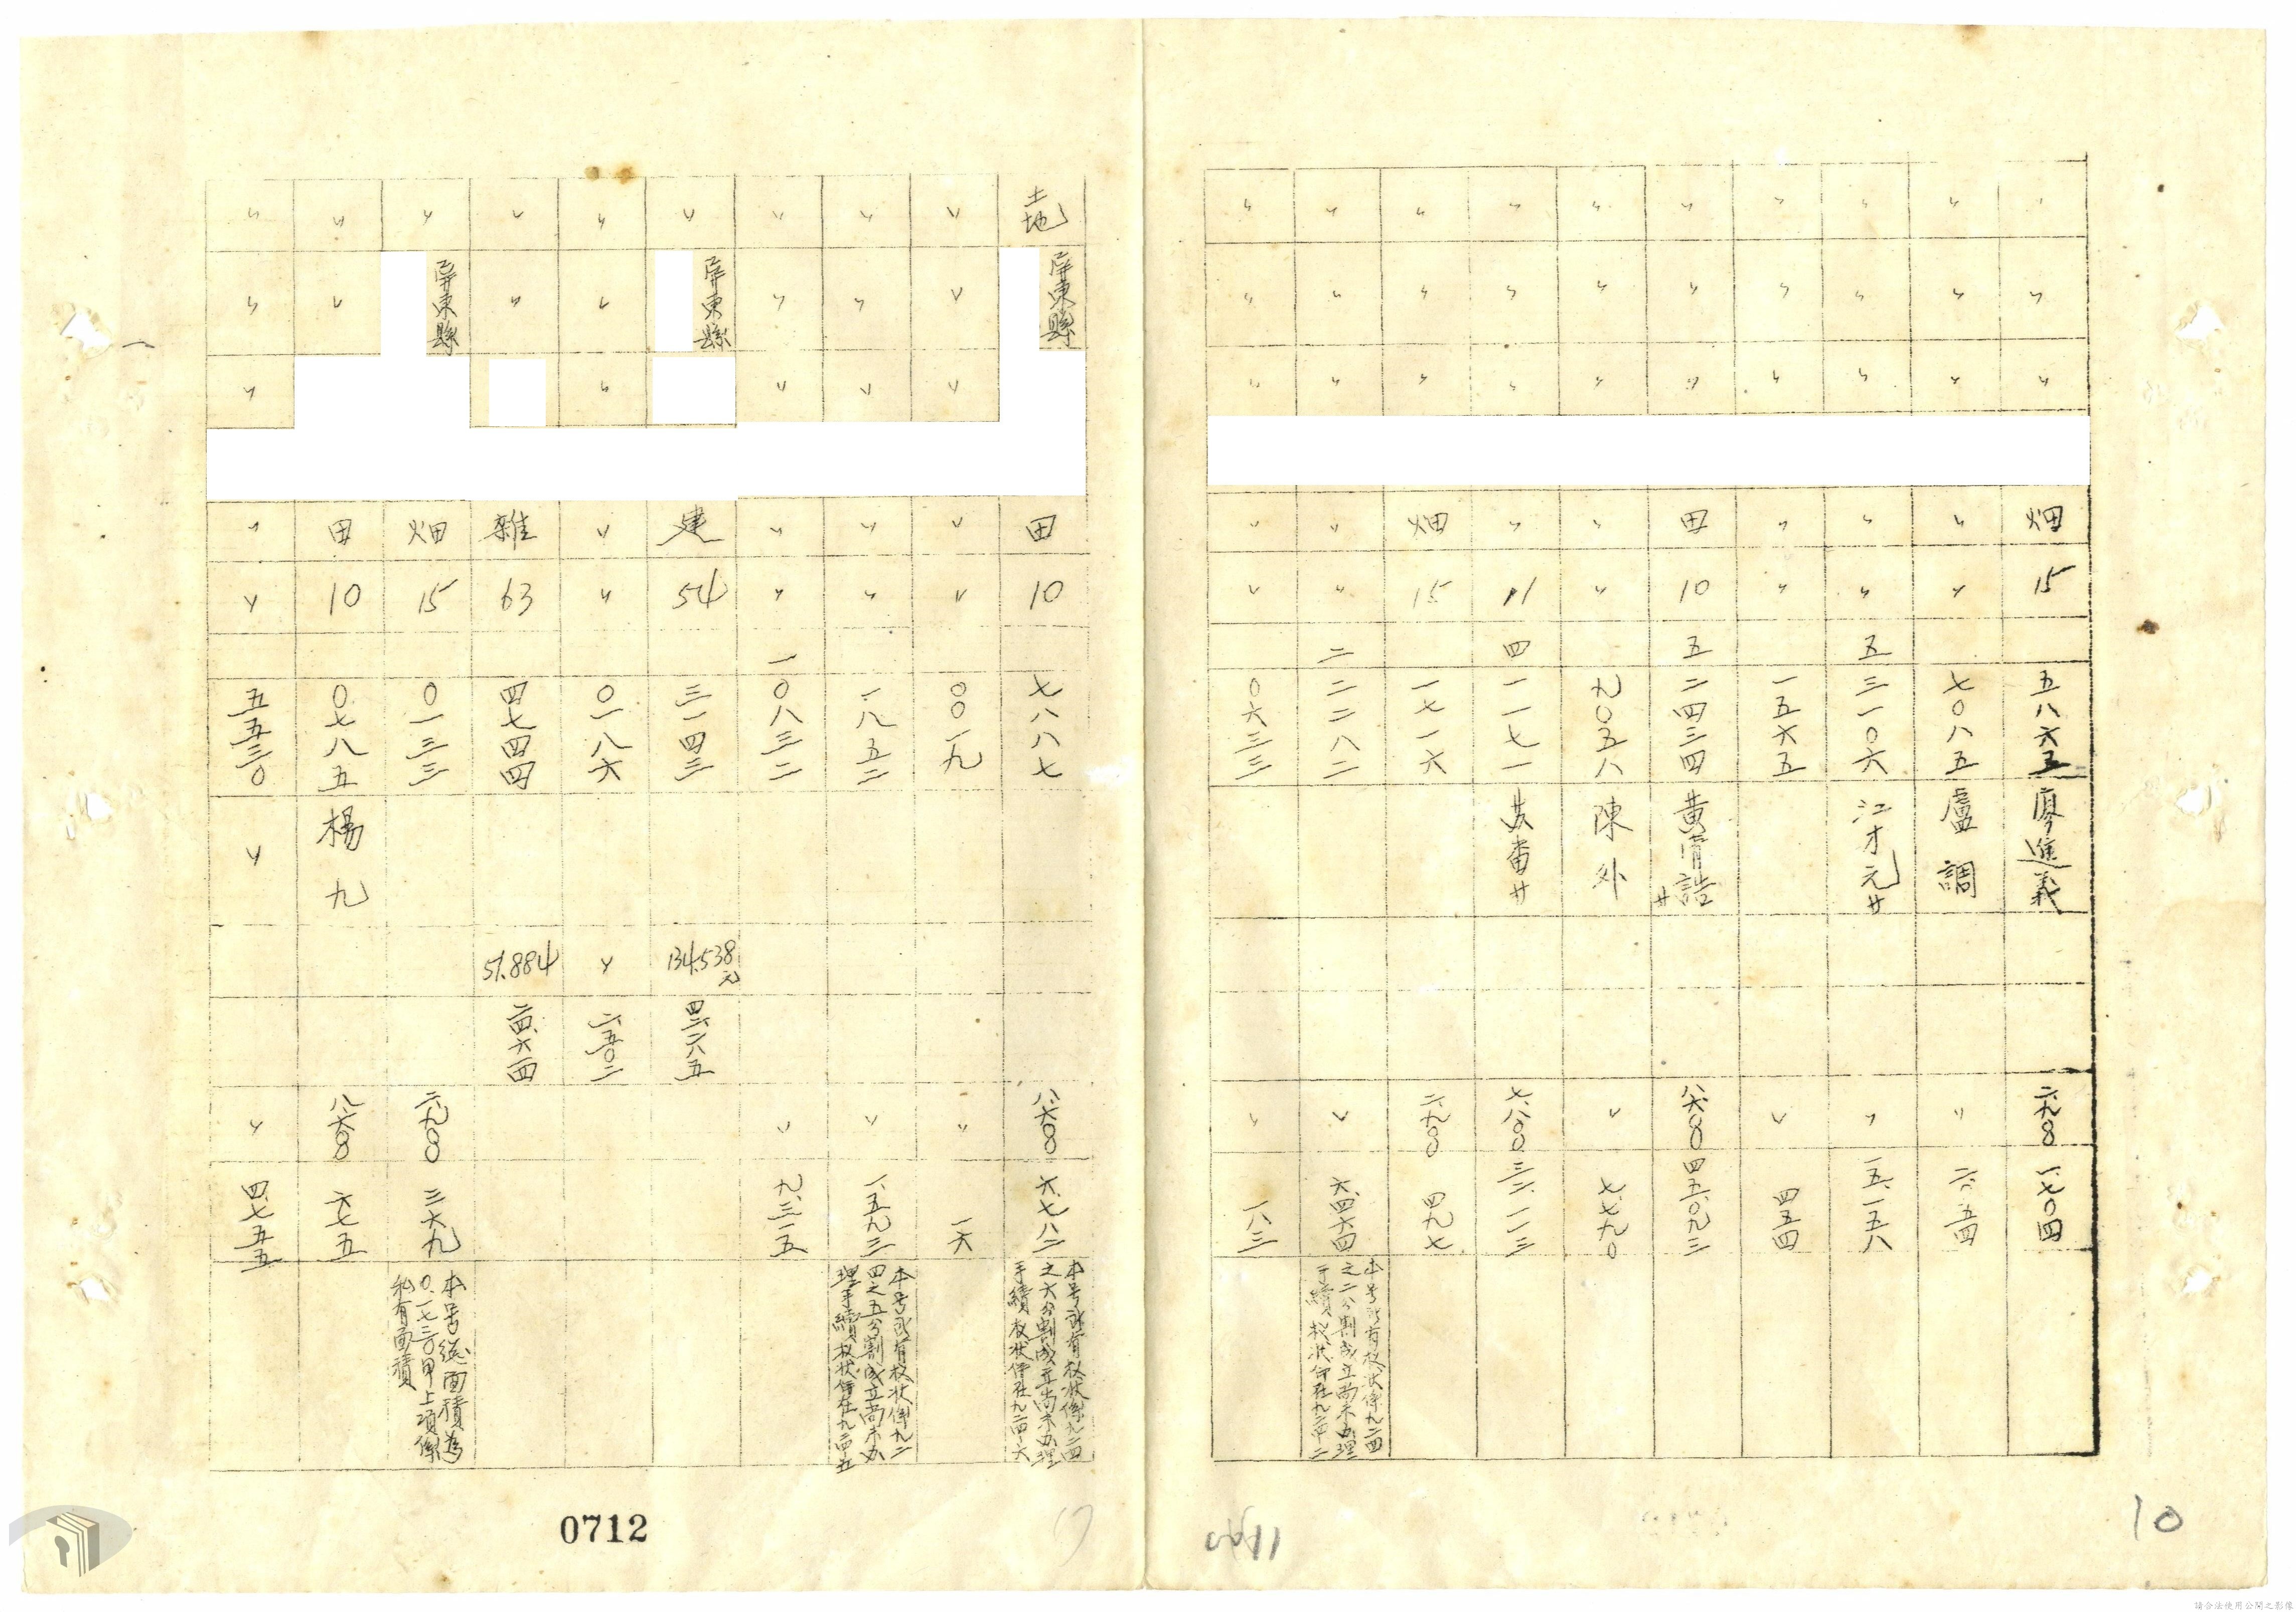 〃 〃 〃 畑 15 五八六五 廖進義 二.九〇〇 一.七〇四
〃 〃 〃 〃 〃 七〇八五 盧調 〃 二.〇五四
〃 〃 〃 〃 〃 五 三一〇六 江才元廿 〃 一五.一五八
〃 〃 〃 〃 〃 一五六五 〃 四五四
〃 〃 〃 田 10 五 二四三四 黃清誥廿 八.六〇〇 四五.〇九三
〃 〃 〃 〃 〃 九〇五八 陳外 〃 七.七九〇
〃 〃 〃 〃 11 四 一一七一 番廿 七.八〇〇 三二.一一三
〃 〃 〃 畑 15 一七一六 二.九〇〇 四九七
〃 〃 〃 〃 〃 二 二二八二 〃 六.四六四
本号所有权状係九二四
之二分割成立尚未办理
手續权状仍在九二四-二
〃 〃 〃 〃 〃 〇六三三 〃 一八三
10
土地 屏東縣 田 10 七八八七 八.六〇〇 六.七八二
本号所有权状係九二四
之六分割成立尚未办理
手續权状仍在九二四-六
〃 〃 〃 〃 〃 〇〇一九 〃 一六
〃 〃 〃 〃 〃 一八五二 〃 一.五九三
本号所有权状係九二
四之五分割成立尚未办
理手續权状仍在九二四-五
〃 〃 〃 〃 〃 一 〇八三二 〃 九.三一五
〃 屏東縣 建 54 三一四三 134.538元 四二.二八五
〃 〃 〃 〃 〃 〇一八六 〃 二.五〇二
〃 〃 雜 63 四七四四 51.884 二四.六一四
〃 屏東縣 畑 15 〇一三三 二.九〇〇 三六九
本号總面積為
〇.一七三〇甲上項係
私有面積
〃 〃 田 10 〇七八五 楊九 八.六〇〇 六七五
〃 〃 〃 〃 〃 五五三〇 〃 〃 四.七五五
0712
請合法使用公開之影像